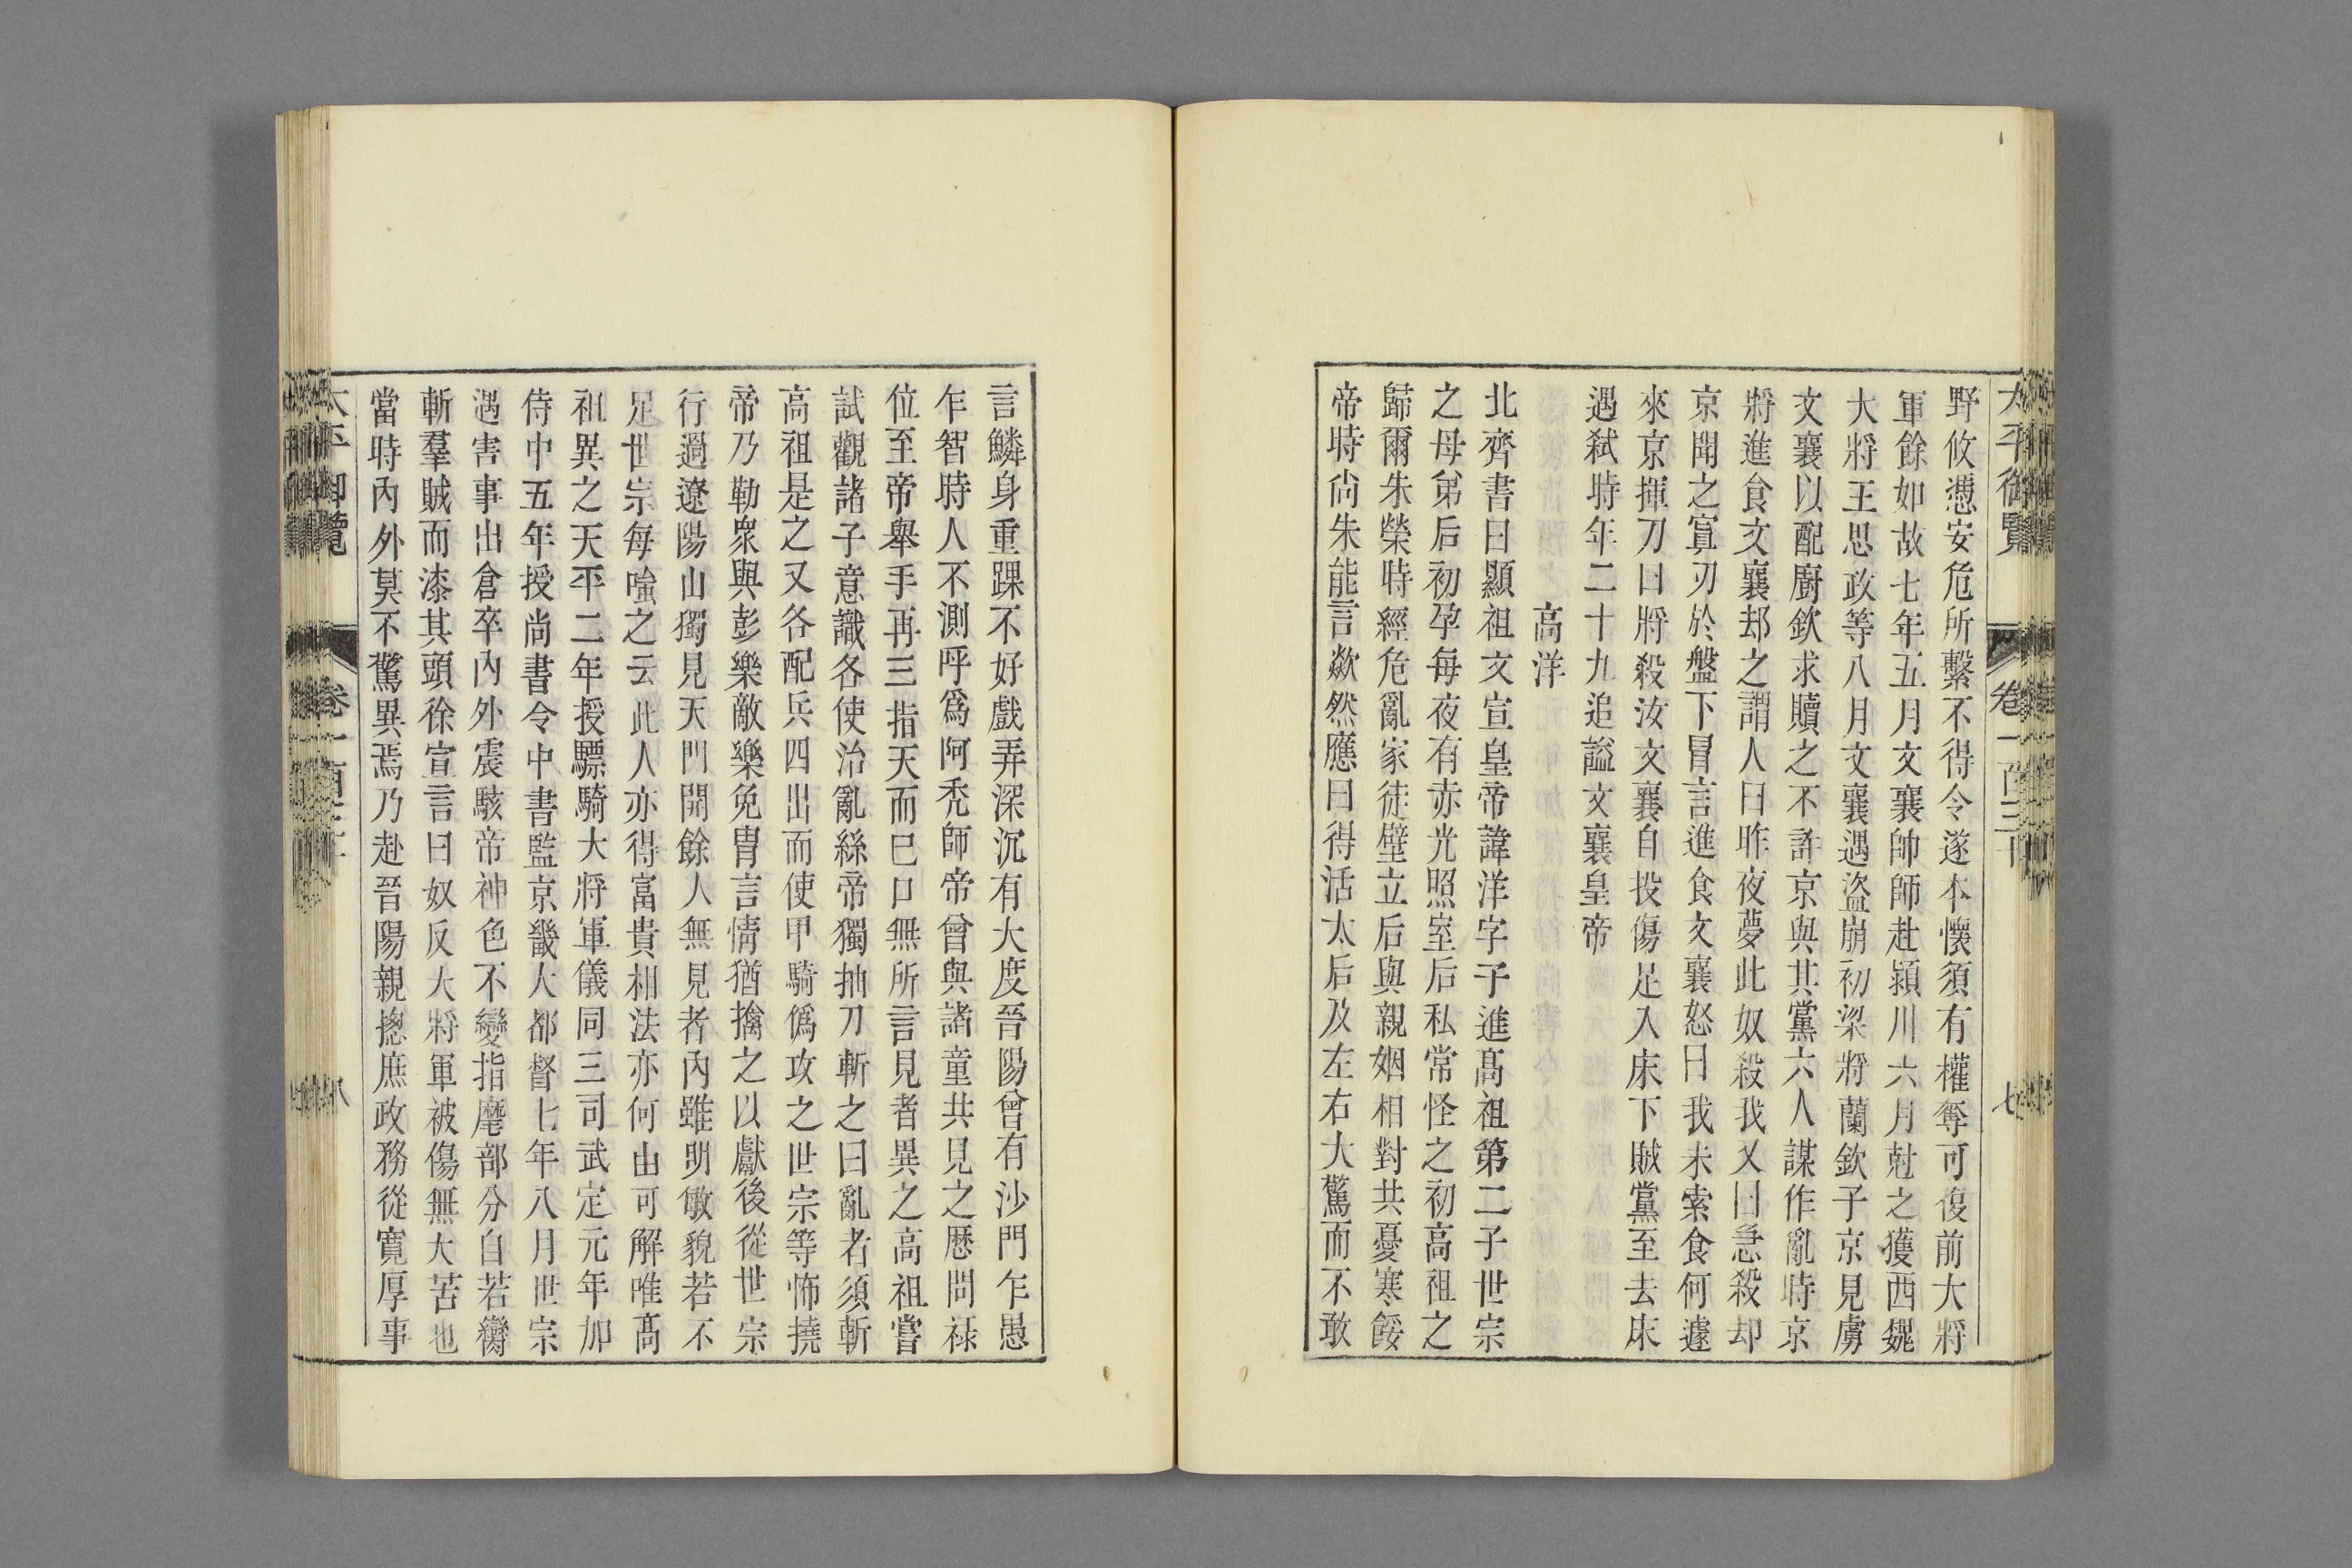 太平御覽 卷一百三十 七
野攸憑安危所繫不得令遂本懷須有權奪可復前大將
軍餘如故七年五月文襄帥師赴潁川六月尅之獲西魏
大將王思政等八月文襄遇盜崩初梁將蘭欽子京見虜
文襄以配廚欽求贖之不許京與其黨六人謀作亂時京
將進食文襄却之謂人曰昨夜夢此奴殺我又曰急殺却
京聞之寘刃於盤下冒言進食文襄怒曰我未索食何遽
來京揮刀曰將殺汝文襄自投傷足入床下賊黨至去床
遇弒時年二十九追謚文襄皇帝
高洋
北齊書曰顯祖文宣皇帝諱洋字子進髙祖第二子世宗
之母弟后初孕每夜有赤光照室后私常怪之初高祖之
歸爾朱榮時經危亂家徒壁立后與親姻相對共憂寒餒
帝時尚未能言欻然應曰得活太后及左右大驚而不敢
言鱗身重踝不好戲弄深沉有大度晉陽曾有沙門乍愚
乍智時人不測呼爲阿禿師帝曾與諸童共見之歷問祿
位至帝舉手再三指天而已口無所言見者異之高祖嘗
試觀諸子意識各使治亂絲帝獨抽刀斬之曰亂者須斬
高祖是之又各配兵四出而使甲騎僞攻之世宗等怖撓
帝乃勒衆與彭樂敵樂免胄言情猶擒之以獻後從世宗
行過遼陽山獨見天門開餘人無見者內雖明敏貌若不
足世宗每嗤之云此人亦得富貴相法亦何由可解唯髙
祖異之天平二年授驃騎大將軍儀同三司武定元年加
侍中五年授尚書令中書監京畿大都督七年八月世宗
遇害事出倉卒內外震駭帝神色不變指麾部分自若臠
斬羣賊而漆其頭徐宣言曰奴反大將軍被傷無大苦也
當時內外莫不驚異焉乃赴晉陽親揔庶政務從寬厚事
太平御覽 卷一百三十 八